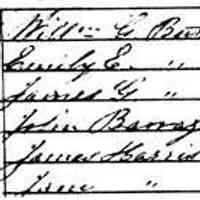 Willm G
Emily E. "
James G "
John
James Harris
Jane "